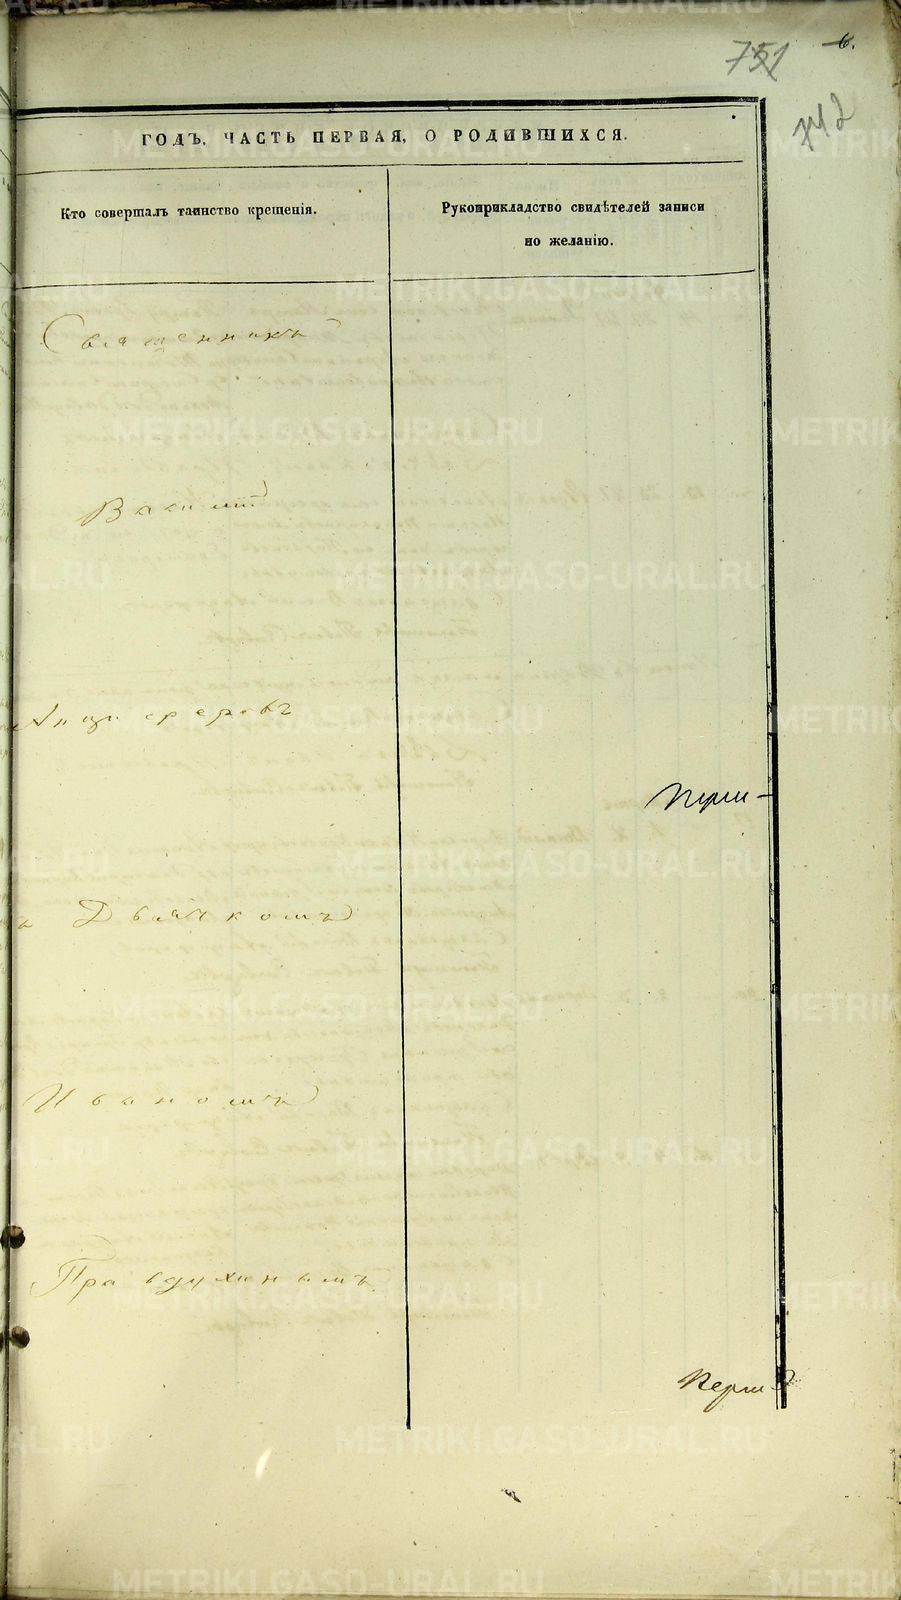 6.
751
742
ГОДЪ, ЧАСТЬ ПЕРВАЯ, О РОДИВШИХСЯ.
Кто совершалъ таинство крещенія.
Рукоприкладство свидѣтелей записи
по желанію.
Священникъ
Василій
Анциферовъ
Перм-
съ Дьячкомъ
Иваномъ
Правдухинымъ
Перм
METRIKI.GASO-URAL.RU